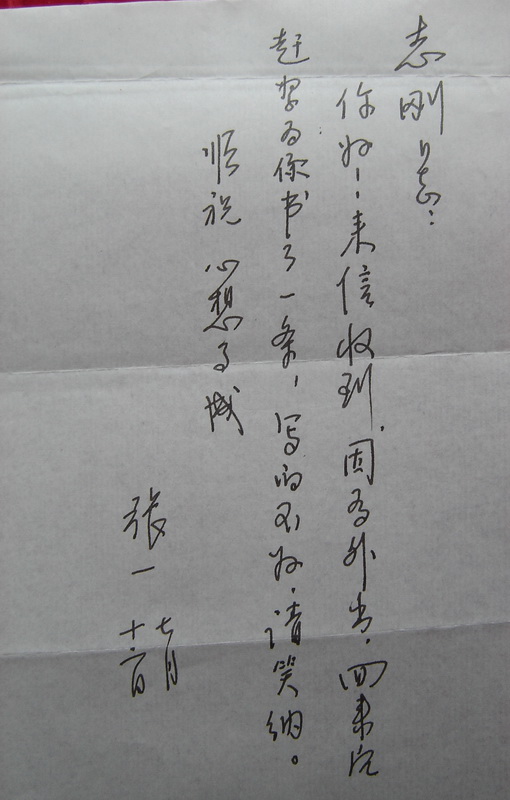 志刚同志：
你好！来信收到，因为外出，回来后
赶紧为你书了一条，写的不好，请笑纳。
顺祝 心想事成
张一
七月
十六日